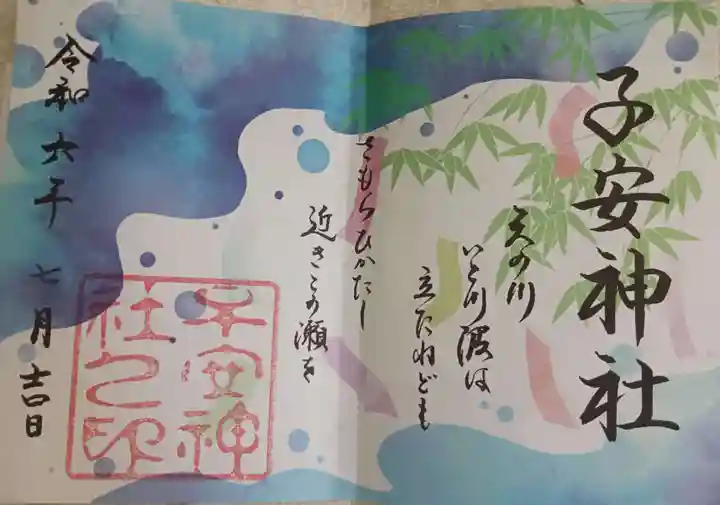 子安神社
天の川
いと川波は
立たねども
さもらひかたし
近きこの瀬を
子安神
社之印
令和六年 七月吉日